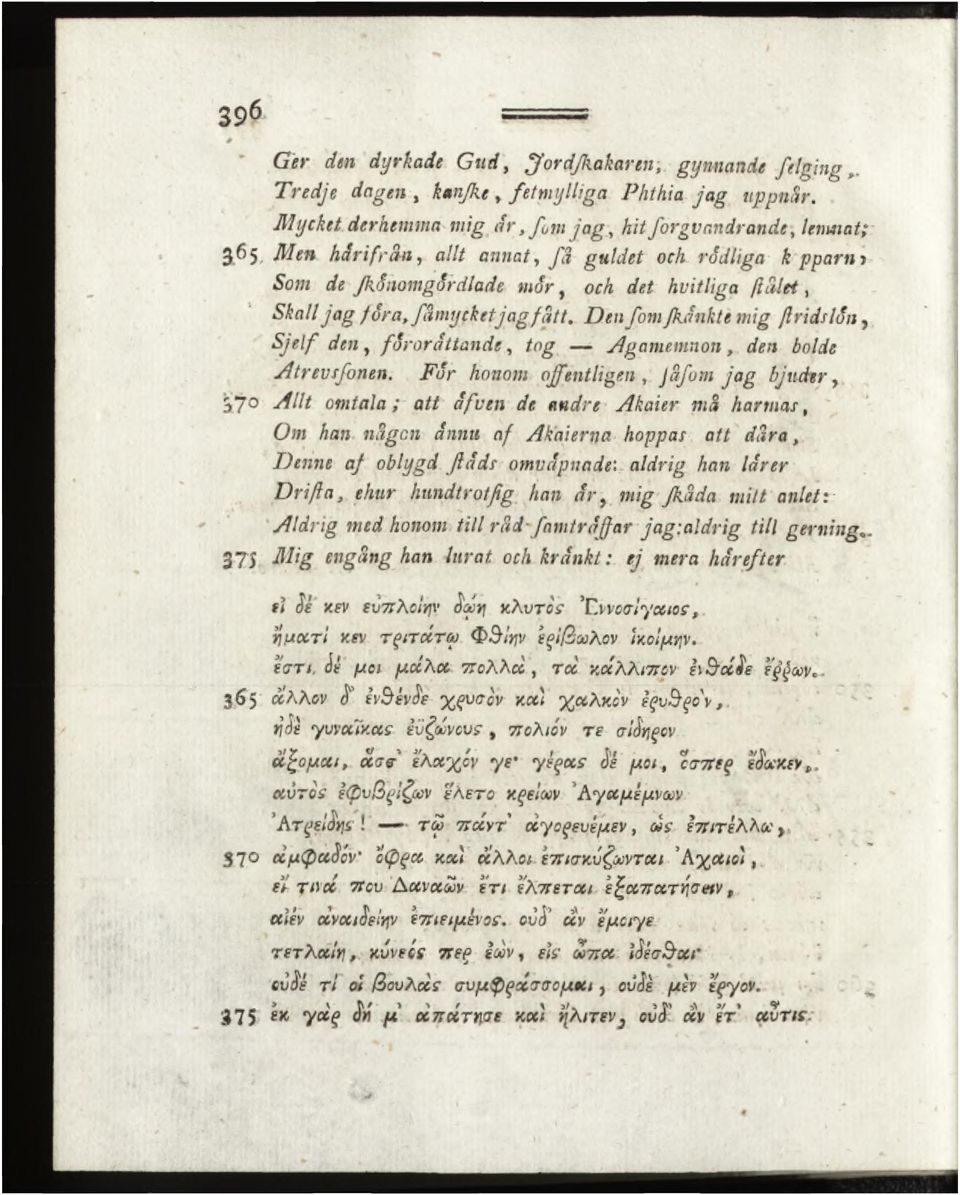 396
Ger den dyrkade Gud, Jordſkakaren, gynnande ſelging,
Tredje dagen, kanſke, fetmylliga Phthia jag uppnår.
Mycket derhemma mig år, ſom jag, hit ſorgvandrande, lemnat;
365 Men hårifrån, allt annat, ſå guldet och rŏdliga k pparn,
Som de ſkŏnomgŏrdlade mŏr, och det hvitliga ſtålet,
Skall jag fŏra, ſåmycket jag fått. Den ſom ſkånkte mig ſtridslŏn,
Sjelf den, fŏroråttande, tog — Agamemnon, den bolde
Atrevsſonen. Fŏr honom offentligen, jåſom jag bjuder,
370 Allt omtala; att åfven de andre Akaier må harmas,
Om han någon ånnu af Akaierna hoppas att dåra,
Denne af oblygd ſtåds omvåpnade: aldrig han lårer
Driſta, ehur hundtrotſig han år, mig ſkåda mitt anlet:
Aldrig med honom till råd ſamtråffar jag: aldrig till gerning.
375 Mig engång han lurat och krånkt: ej mera hårefter
εἰ δέ κεν εὐπλοίην δώῃ κλυτὸς Ἐννοσίγαιος,
ἤματί κεν τριτάτῳ Φθίην ἐρίβωλον ἱκοίμην.
ἔστι δέ μοι μάλα πολλὰ, τὰ κάλλιπον ἐνθάδε ἔῤῥων.
365 ἄλλον δ' ἐνθένδε χρυσὸν καὶ χαλκὸν ἐρυθρὸν,
ἠδὲ γυναῖκας ἐϋζώνους, πολιόν τε σίδηρον
ἄξομαι, ἅσσ' ἔλαχόν γε· γέρας δέ μοι, ὅσπερ ἔδωκεν,
αὐτὸς ἐφυβρίζων ἕλετο κρείων Ἀγαμέμνων
Ἀτρείδης! — τῷ πάντ' ἀγορευέμεν, ὡς ἐπιτέλλω,
370 ἀμφαδόν· ὄφρα καὶ ἄλλοι ἐπισκύζωνται Ἀχαιοὶ,
εἴ τινά που Δαναῶν ἔτι ἔλπεται ἐξαπατήσειν,
αἰέν ἀναιδείην ἐπιειμένος. οὐδ' ἂν ἔμοιγε
τετλαίη, κύνεός περ ἐὼν, εἰς ὦπα ἰδέσθαι·
οὐδέ τί οἱ βουλὰς συμφράσσομαι, οὐδὲ μὲν ἔργον.
375 ἐκ γὰρ δή μ' ἀπάτησε καὶ ἤλιτεν, οὐδ' ἂν ἔτ' αὖτις